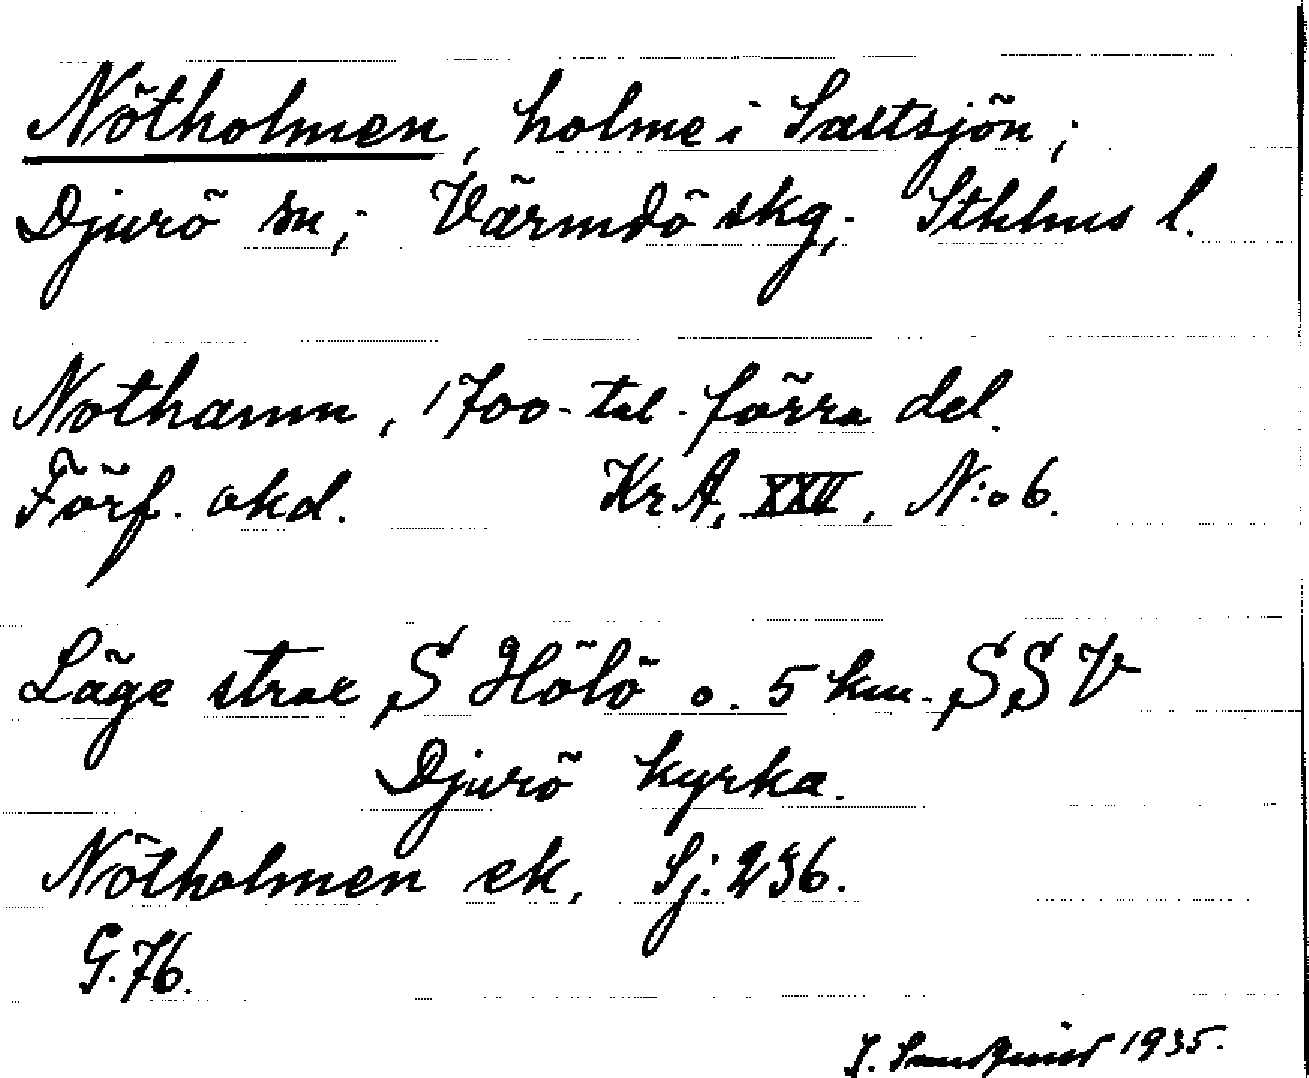 Nötholmen, holme i Saltsjön;
Djurö sn; Värmdö skg; Sthlms l.
Nothamn, 1700-tal. förra del.
Förf. okd. KrA, XXII, N:o 6.
Läge strax S Hölö o. 5 km. SSV
Djurö kyrka.
Nötholmen ek, Sj: 236.
G. 76.
1935.